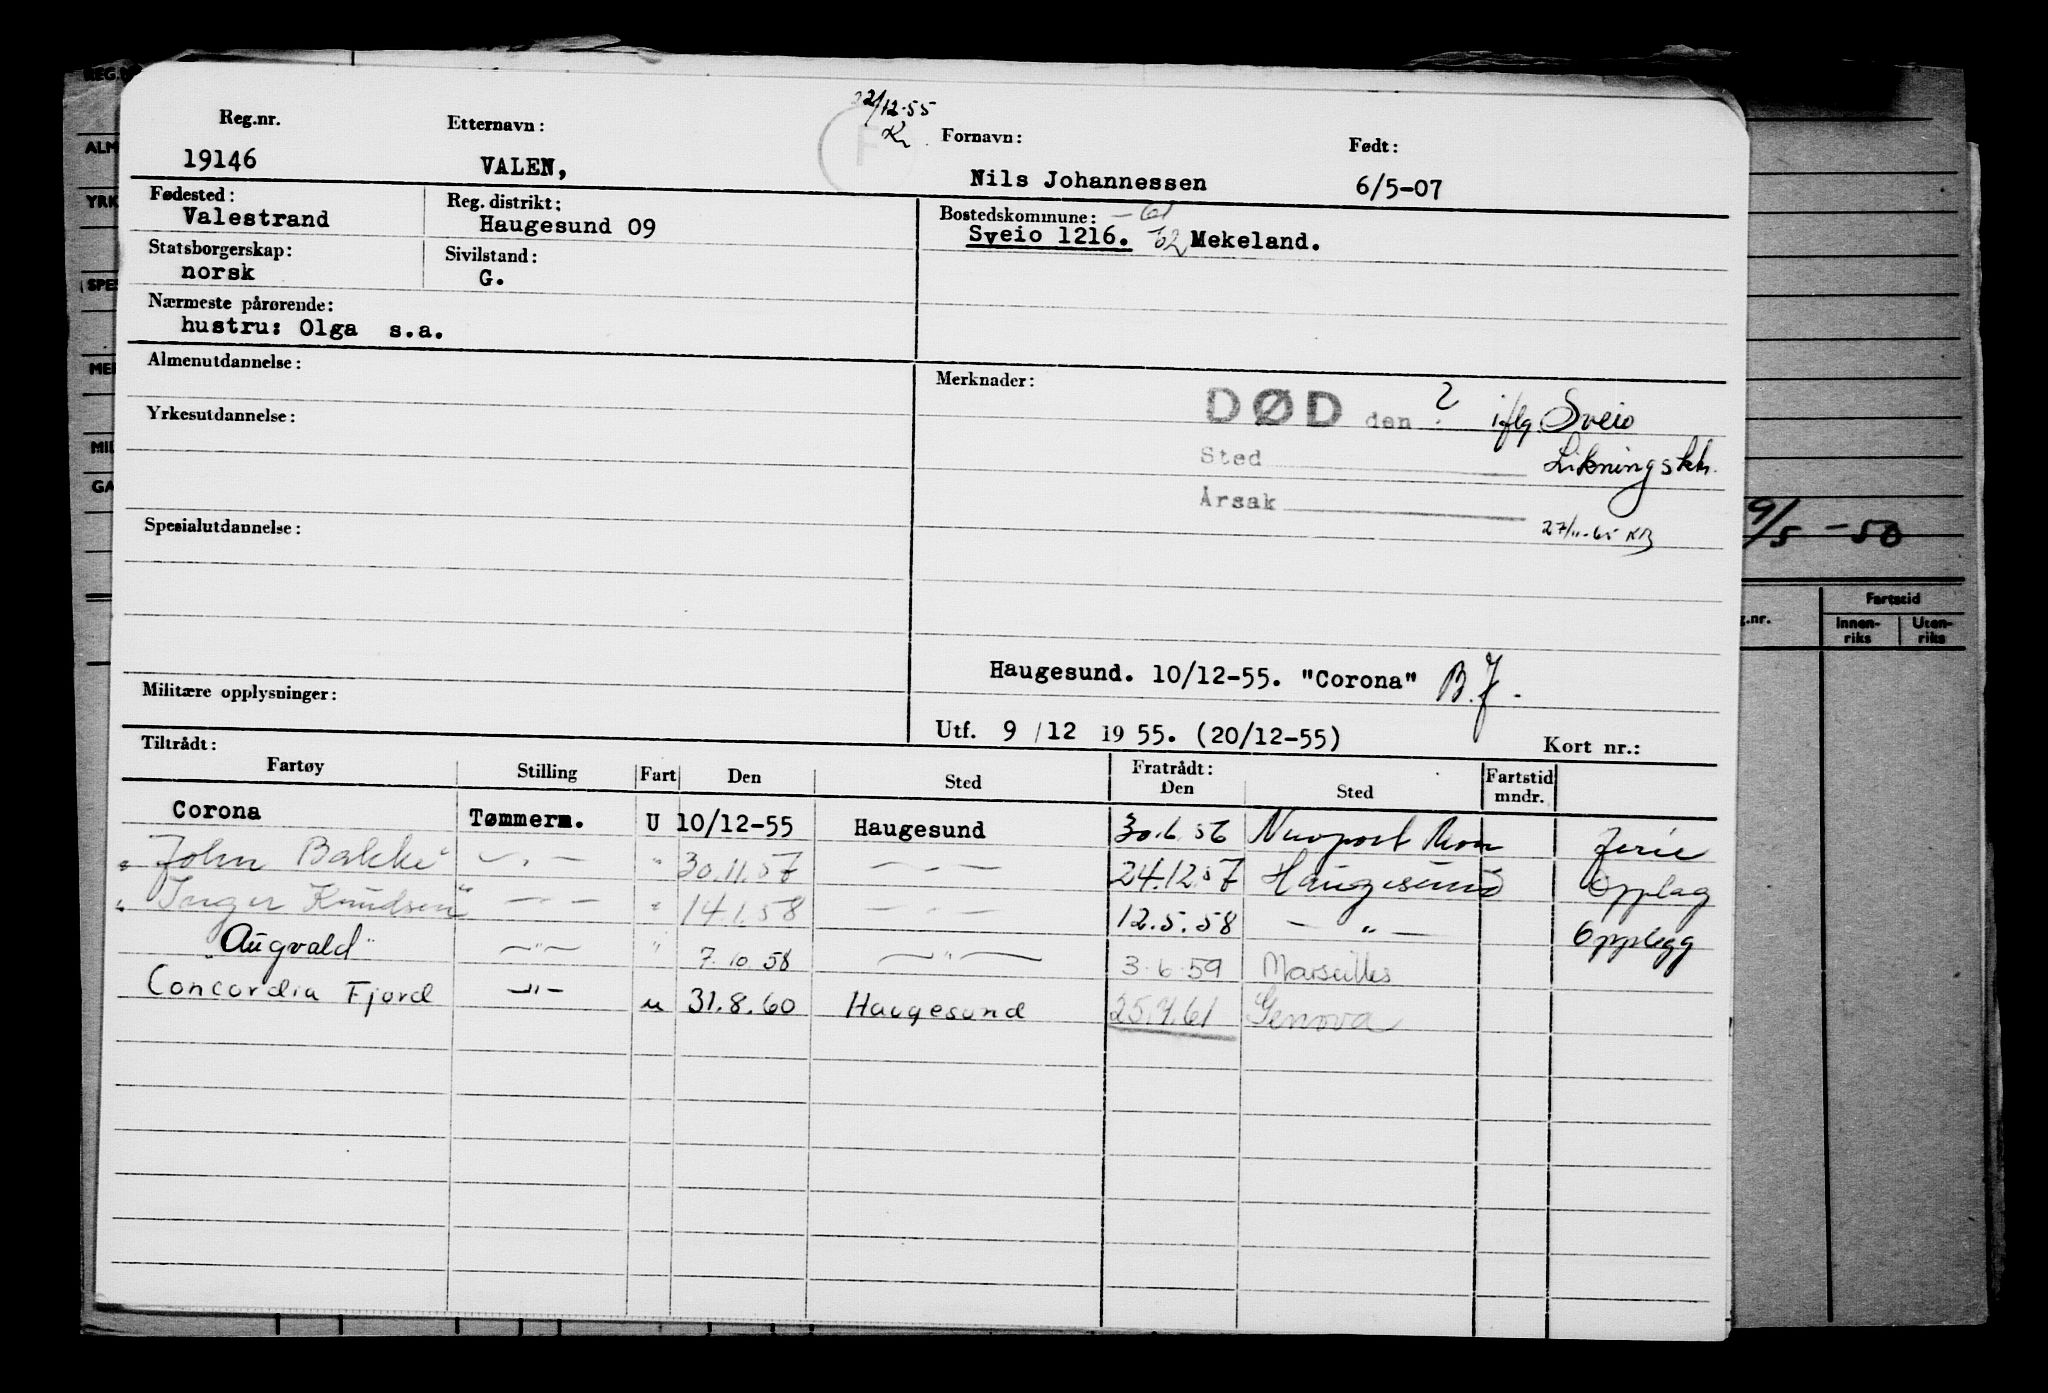 22/12-55
Reg.nr. Etternavn: Fornavn: Født:
19146 VALEN, Nils Johannessen 6/5-07
Fødested: Reg. distrikt: Bostedskommune: -61
Valestrand Haugesund 09 Sveio 1216. 62 Mekeland.
Statsborgerskap: Sivilstand:
norsk G.
Nærmeste pårørende:
hustru: Olga s.a.
Almenutdannelse: Merknader:
DØD den ? iflg. Sveio
Yrkesutdannelse:
Sted Likningskk.
Årsak
Spesialutdannelse: 27/11-65 KB
9/5-50
Fartstid
g.nr. Innen-riks Uten-riks
Haugesund. 10/12-55. "Corona" B.J.
Militære opplysninger:
Utf. 9/12 1955. (20/12-55) Kort nr.:
Tiltrådt: Fratrådt:
Fartøy Stilling Fart Den Sted Den Sted Fartstid mndr.
Corona Tømmerm. U 10/12-55 Haugesund 30.6.56 Newport Ferie
"John Bakke" — " — " 30.11.57 — " — 24.12.57 Haugesund Opplag
"Inger Knudsen" — " — " 14.1.58 — " — 12.5.58 — " — Opplegg
"Augvald" — " — " 7.10.58 — " — 3.6.59 Marseilles
Concordia Fjord — " — u 31.8.60 Haugesund 25.4.61 Genova